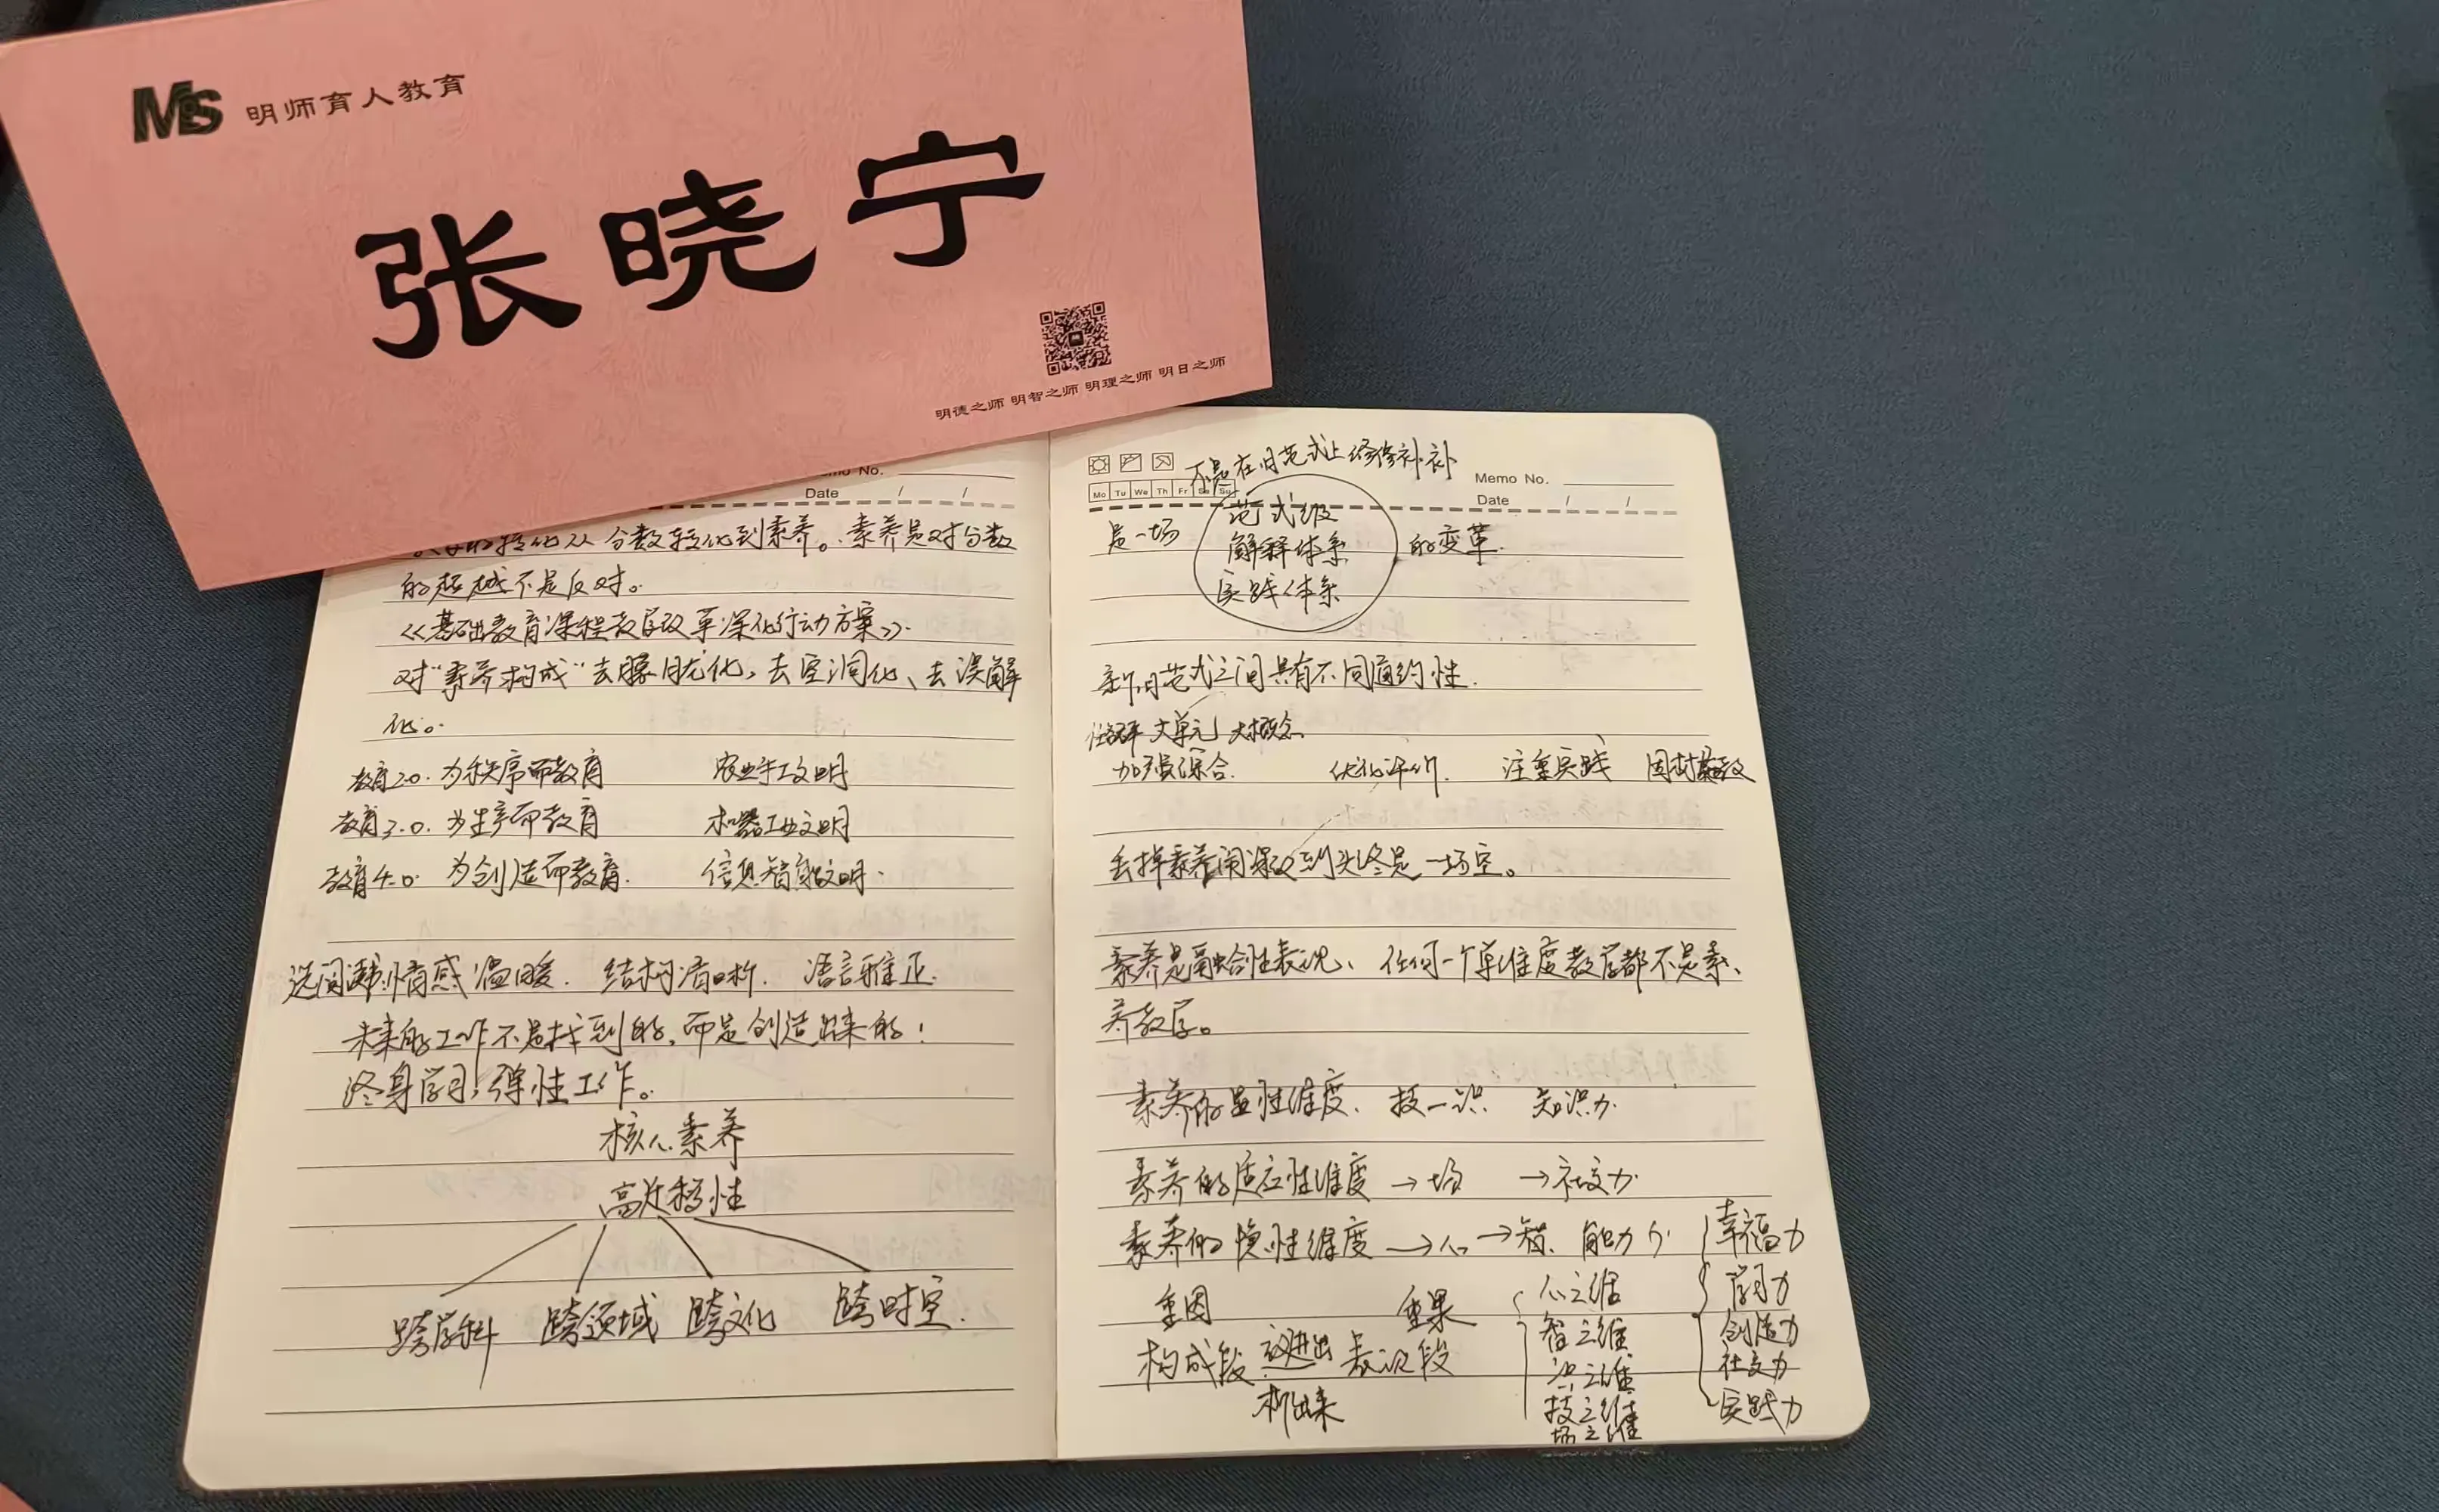 MS 明师育人教育
张晓宁
明德之师 明智之师 明理之师 明日之师
Memo No.
Date / /
转化从分数转化到素养。素养是对分数
的超越不是反对。
《基础教育课程教学改革深化行动方案》
对“素养构成”去朦胧化、去空洞化、去误解
化。
教育2.0. 为秩序而教育 农业手工文明
教育3.0. 为生产而教育 机器工业文明
教育4.0. 为创造而教育. 信息智能文明.
情感温暖. 结构清晰. 语言雅正.
未来的工作不是找到的,而是创造出来的!
终身学习,弹性工作。
核心素养
高迁移性
跨学科 跨领域 跨文化 跨时空.
不是在旧范式上修修补补
Mo Tu We Th Fr Sa Su
Memo No.
Date / /
范式级
是一场 解释体系 的变革.
实践体系
新旧范式之间具有不可通约性.
任务群 大单元 大概念
加强综合. 优化评价. 注重实践 因材施教
丢掉素养闹课改到头终是一场空。
素养是融合性表现、任何一个单维度教学都不是素
养教学。
素养的显性维度. 技—识 知识力.
素养的适应性维度 → 场 → 社交力.
素养的惯性维度 → 心 → 智. 能力
重因 重果
构成段 表现段
析出来
心之维
智之维
识之维
技之维
场之维
幸福力
学习力
创造力
社交力
实践力